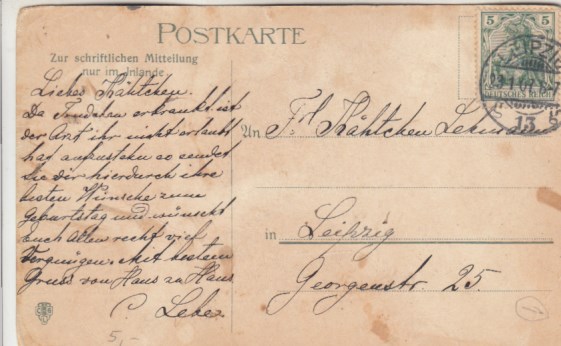 POSTKARTE
Zur schriftlichen Mitteilung
nur im Inlande.
Liebes Käthchen.
Da erkrankt ist
der Arzt ihr nicht erlaubt
hat aufzustehn so sendet
Sie Dir hierdurch ihre
besten Wünsche zum
Geburtstag und wünscht
Euch Allen recht viel
Vergnügen. Mit bestem
Gruss von Haus zu Haus
C.
An Frl Käthchen Lehmann
in Leipzig
Georgenstr. 25.
5 5
DEUTSCHES REICH
LEIPZIG
13
5,-
1